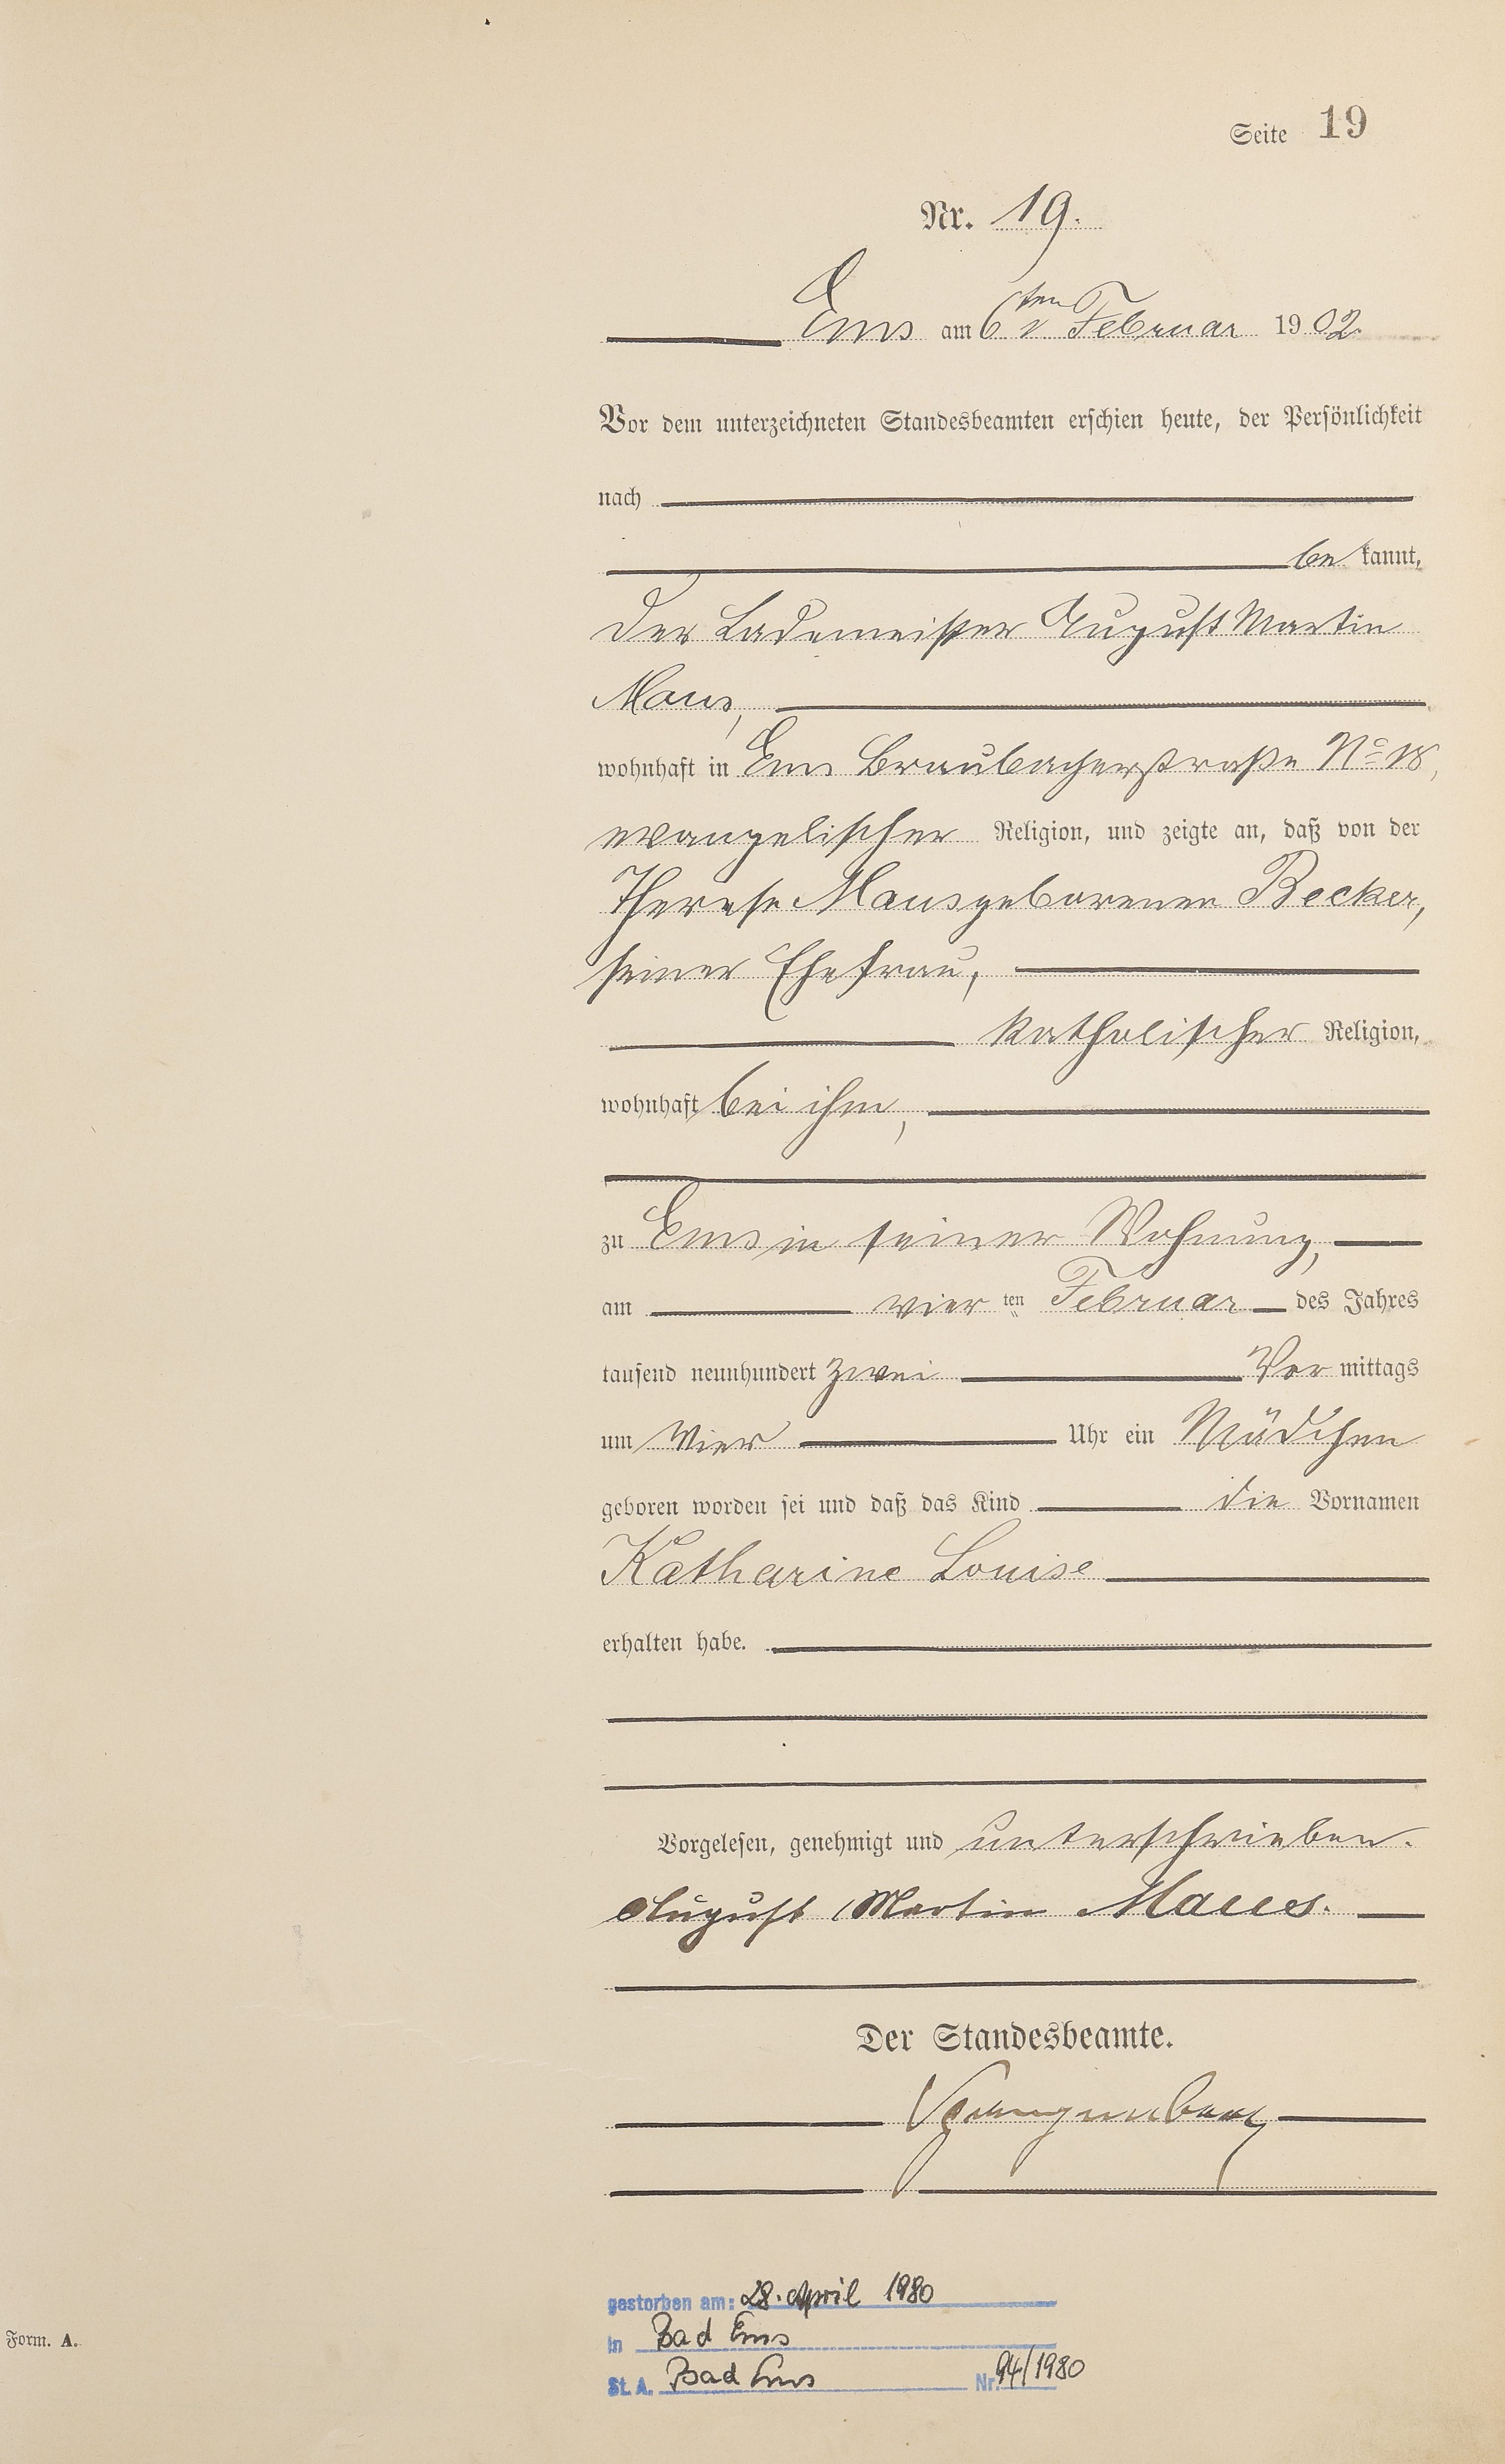 Seite 19
Nr. 19.
Ems am 6ten Februar 1902.
Vor dem unterzeichneten Standesbeamten erschien heute, der Persönlichkeit
nach
bekannt,
der Lademeister August Martin
Maus,
wohnhaft in Ems Braubacherstraße No 18,
evangelischer Religion, und zeigte an, daß von der
Therese Maus geborenen Becker,
seiner Ehefrau,
katholischer Religion,
wohnhaft bei ihm,
zu Ems in seiner Wohnung,
am vier ten Februar des Jahres
tausend neunhundert zwei Vor mittags
um vier Uhr ein Mädchen
geboren worden sei und daß das Kind die Vornamen
Katharine Louise
erhalten habe.
Vorgelesen, genehmigt und unterschrieben.
August Martin Maus.
Der Standesbeamte.
Spangenberg
gestorben am: 28. April 1980
in Bad Ems
St. A. Bad Ems Nr. 94/1980
Form. A.